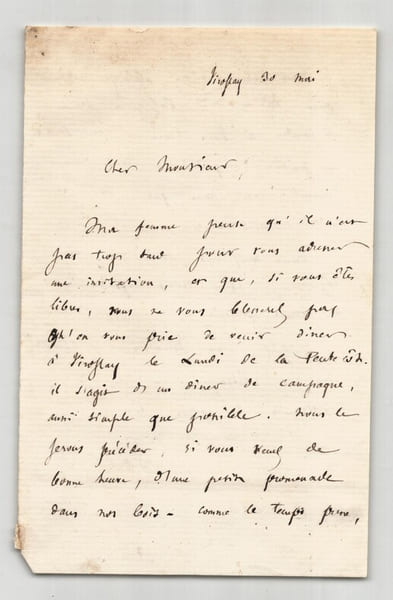 Viroflay 30 mai
Cher Monsieur,
Ma femme pense qu'il n'est
pas trop tard pour vous adresser
une invitation, et que, si vous êtes
libre, vous ne vous blesserez pas
qu'on vous prie de venir dîner
à Viroflay le Lundi de la Pentecôte.
il s'agit d'un dîner de campagne,
aussi simple que possible. Nous le
ferons précéder, si vous venez de
bonne heure, d'une petite promenade
dans nos bois - comme le temps presse,